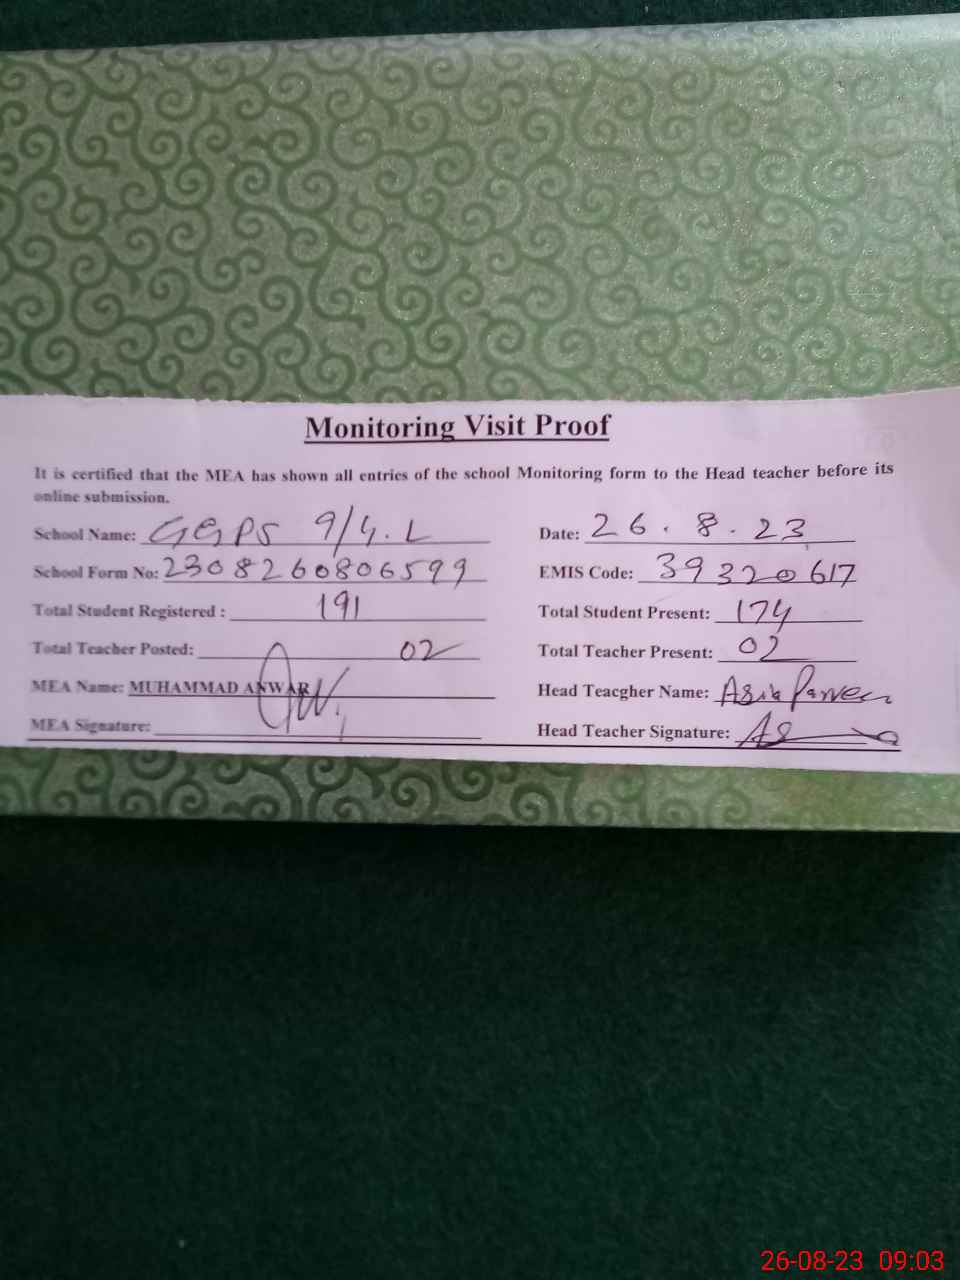 Monitoring Visit Proof
It is certified that the MEA has shown all entries of the school Monitoring form to the Head teacher before its
online submission.
School Name: GGPS 9/4.L Date: 26.8.23
School Form No: 230826080６599 EMIS Code: 39320617
Total Student Registered : 191 Total Student Present: 174
Total Teacher Posted: 02 Total Teacher Present: 02
MEA Name: MUHAMMAD ANWAR Head Teacgher Name: Asia Parveen
MEA Signature: Head Teacher Signature:
26-08-23 09:03